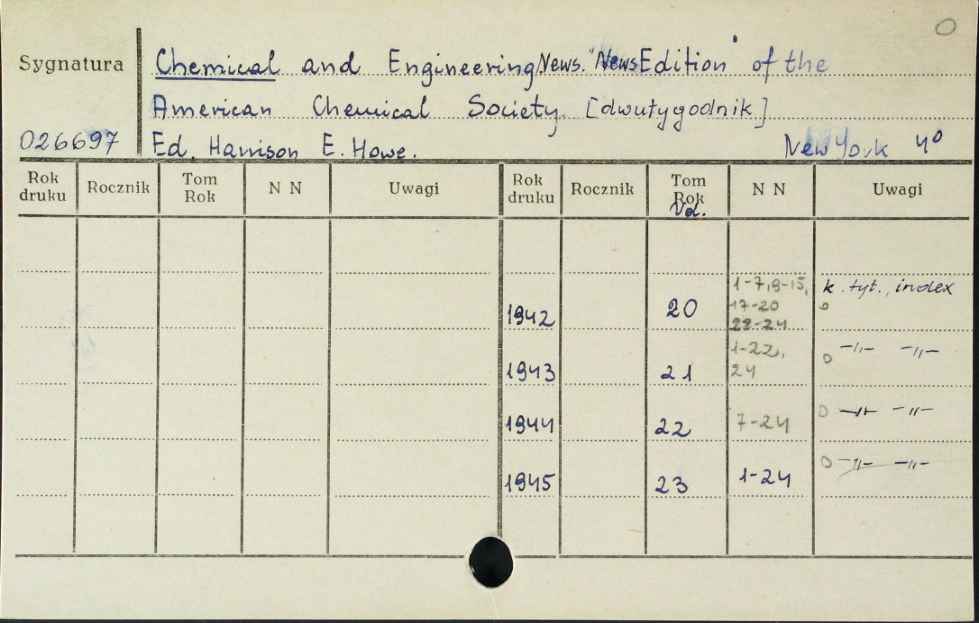 0
Sygnatura
Chemical and Engineering News. "News Edition" of the
American Chemical Society. [dwutygodnik]
026697 Ed. Harrison E. Howe. New York 4⁰
Rok druku Rocznik Tom Rok N N Uwagi Rok druku Rocznik Tom Rok Vol. N N Uwagi
1942 20 1-7,9-15, 17-20 22-24 k. tyt., index
1943 21 1-22, 24 0 -„- -„-
1944 22 7-24 0 -„- -„-
1945 23 1-24 0 -„- -„-